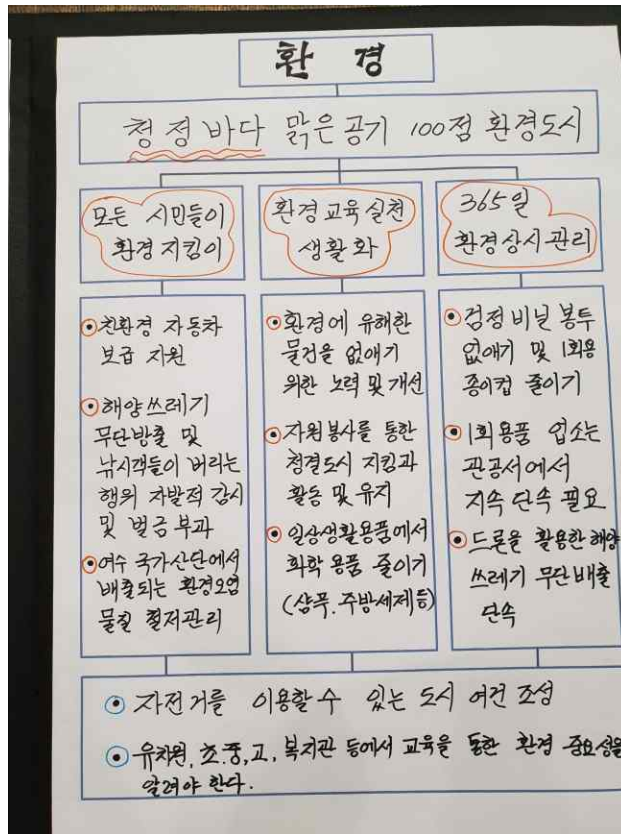 환 경
청정바다 맑은공기 100점 환경도시
모든 시민들이
환경지킴이
환경교육실천
생활화
365일
환경상시관리
친환경 자동차
보급 지원
해양쓰레기
무단방출 및
낚시객들이 버리는
행위 자발적 감시
및 벌금 부과
여수 국가산단에서
배출되는 환경오염
물질 철저관리
환경에 유해한
물건을 없애기
위한 노력 및 개선
자원봉사를 통한
청결도시 지킴과
활동 및 유지
일상생활용품에서
화학 용품 줄이기
(샴푸.주방세제등)
검정비닐봉투
없애기 및 1회용
종이컵 줄이기
1회용품 업소는
관공서에서
지속 단속 필요
드론을 활용한 해양
쓰레기 무단배출
단속
자전거를 이용할수 있는 도시 여건 조성
유치원, 초.중,고, 복지관 등에서 교육을 통한 환경 중요성을
알려야 한다.